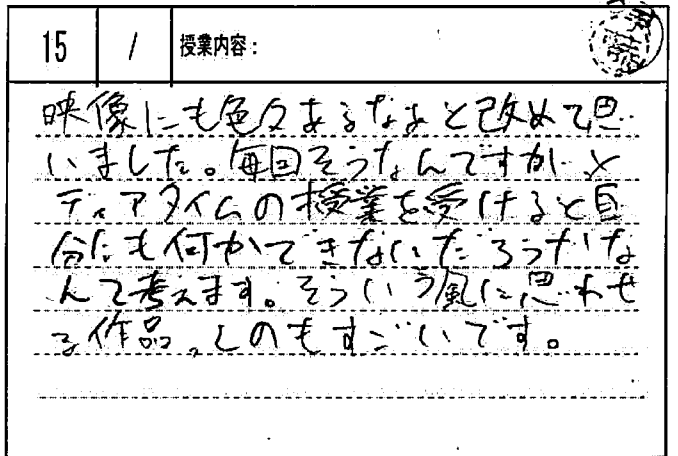 15 / 授業内容：
映像にも色々あるなぁと改めて思
いました。毎回そうなんですが、メ
ディアタイムの授業を受けると自
分にも何かできないだろうかな
んて考えます。そういう風に思わせ
る作品、どのもすごいです。